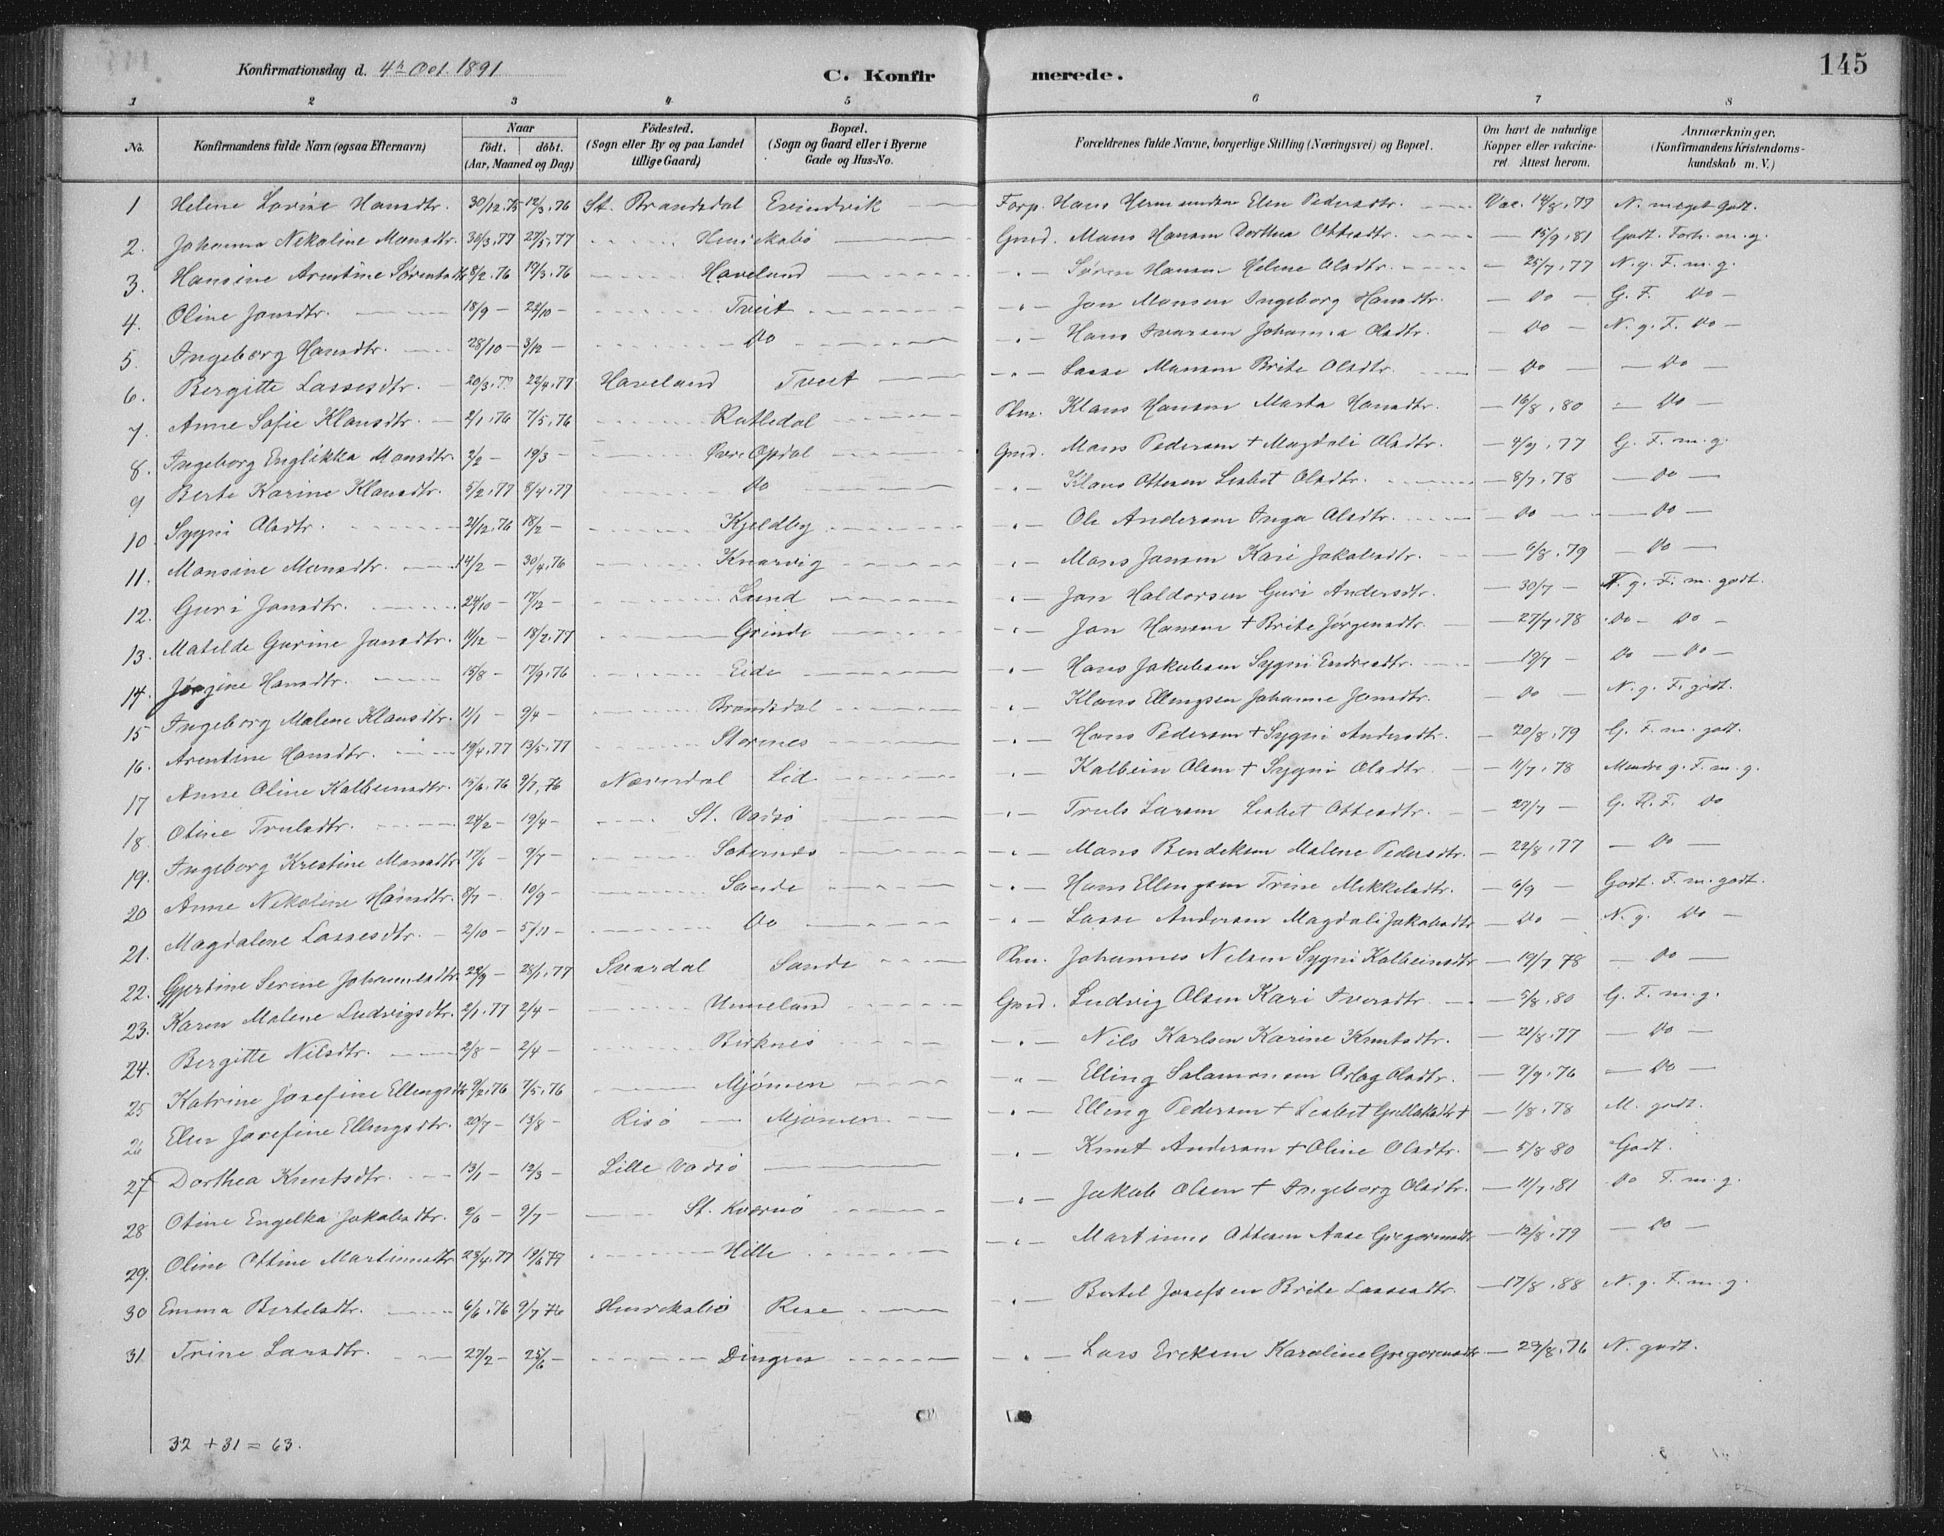 Konfirmationsdag d. 4de Oct. 1891
C. Konfirmerede.
145
1 2 3 4 5 6 7 8
No.
Konfirmandens fulde Navn (ogsaa Efternavn)
Naar
födt. döbt.
(Aar, Maaned og Dag)
Födested.
(Sogn eller By og paa Landet tillige Gaard)
Bopæl.
(Sogn og Gaard eller i Byerne Gade og Hus-No.
Forældrenes fulde Navne, borgerlige Stilling (Næringsvei) og Bopæl.
Om havt de naturlige Kopper eller vakcineret. Attest herom.
Anmærkninger.
(Konfirmandens Kristendomskundskab m. V.)
1 Helene Lovise Hansdtr. 30/12.75 12/3.76 St. Brandsdal Evindvik Forp. Hans Hermundsen Elen Pedersdtr. Vac. 14/8.77 N. meget godt.
2. Johanna Nekoline Monsdtr. 30/3.77 27/5.77 Henriksbö Gmd. Mons Hansen Dorthea Ottesdtr. 15/9.81 Godt. Forh. m. g.
3. Hansine Arentine Sørensdtr 8/2.76 19/3.76 Haveland Søren Hansen Helene Olsdtr. 25/7.77 N. g. F. m. g.
4. Oline Jonsdtr. 18/9 22/10 Tveit Jon Monsen Ingeborg Hansdtr. Do G. F. Do
5. Ingeborg Hansdtr. 28/10 3/12 Do Hans Ivarsen Johanna Olsdtr. Do N. g. F. Do
6. Bergitte Lassesdtr. 20/3.77 22/4.77 Haveland Tveit Lasse Monsen Brite Olsdtr. Do Do
7. Anne Sofie Klausdtr. 2/1.76 7/5.76 Rutledal Plm. Klaus Hansen Marta Hansdtr. 16/8.80 Do
8. Ingeborg Englikka Monsdtr. 2/2 19/3 Øvre Opdal Gmd. Mons Pedersen + Magdali Olsdtr. 4/9.77 G. F. m. g.
9 Berte Karine Klausdtr. 5/2.77 8/4.77 Do Klaus Ottesen Lisbet Olsdtr. 8/7.78 Do
10. Sygni Olsdtr. 2/12.76 18/2 Kjeldby Ole Andersen Inga Olsdtr. Do Do
11. Monsine Monsdtr. 14/2 30/4.76 Knarvig Mons Jonsen Kari Jakobsdtr. 6/8.79 Do
12. Guri Jonsdtr. 24/10 17/12 Lund Jon Haldorsen Guri Andersdtr. 30/7 N. g. F. m. godt.
13. Matilde Gurine Jonsdtr. 11/12 18/2.77 Grinde Jon Hansen + Brite Jørgensdtr. 27/7.78 Do Do
14. Jørgine Hansdtr. 15/8 17/9.76 Eide Hans Jakobsen Sygni Endresdtr. 19/7 Do Do
15 Ingeborg Malene Klausdtr. 11/1 9/4 Brandsdal Klaus Ellingsen Johanne Jonsdtr. Do N. g. F. godt.
16. Arentine Hansdtr. 19/4.77 13/5.77 Stornes Hans Pedersen + Sygni Andersdtr. 20/8.79 G. F. m. godt.
17 Anne Oline Kolbeinsdtr. 15/6.76 9/7.76 Næverdal Lid Kolbein Olsen + Sygni Olsdtr. 11/7.78 Mindre g. F. m. g.
18. Otine Trulsdtr. 24/2 19/4 St. Vadsö Truls Larsen Lisbet Ottesdtr. 27/7 G. K. F. Do
19. Ingeborg Kristine Monsdtr 17/6 9/7 Saternes Mons Bendiksen Malene Pedersdtr. 22/8.77 Do
20 Anne Nekoline Hansdtr. 8/7 10/9 Sande Hans Ellingsen Trine Mikkelsdtr. 6/9 Godt. F. m. godt.
21. Magdalene Lassesdtr. 2/10 5/11 Do Lasse Andersen Magdali Jakobsdtr Do N. g. Do
22. Gjertine Serine Johannesdtr. 22/9 28/1.77 Svardal Sande Plm. Johannes Nilsen Sygni Kolbeinsdtr 19/7 78 Do
23. Karen Malene Ludvigsdtr. 2/1.77 2/4 Unneland Gmd. Ludvig Olsen Kari Iversdtr. 5/8.80 G. F. m. g.
24. Bergitte Nilsdtr. 2/8 2/4 Birknes Nils Karlsen Karine Knutsdtr. 21/8.77 Do
25 Katrine Josefine Ellingsdtr 9/2.76 7/5.76 Mjömen Elling Salamonsen Aslag Olsdtr. 9/9.76 Do
26 Elen Josefine Ellingsdtr. 20/7 13/8 Risö Mjömen Elling Pedersen + Lisbet Gullaksdtr + 1/8.78 M. godt.
27 Dorthea Knutsdtr. 13/1 12/3 Lille Vadsö Knut Andersen + Oline Olsdtr. 5/8 80 Godt.
28 Otine Engelka Jakobsdtr. 2/6 9/7 St. Kversö Jakob Olsen + Ingeborg Olsdtr. 11/7.81 Do F. m. g.
29. Oline Ottine Martinusdtr 23/4.77 19/6 77 Hille Martinus Ottesen Aase Gregoriusdtr 12/8.79 Do
30 Emma Bertelsdtr. 6/6.76 9/7 76 Henriksbö Risø Bertel Josefsen Brite Lassesdtr. 17/8.88 N. g. F. m. g.
31. Trine Larsdtr. 27/2 25/6 Dingen Lars Ericksen Karoline Gregoriusdtr 23/8.76 N. godt.
32 + 31 = 63.